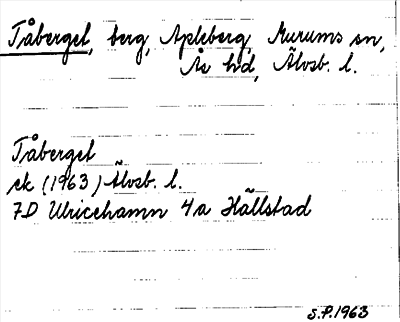 Tåberget, berg, Apleberg, Murums sn,
Ås hd, Älvsb. l.
Tåberget
ek (1963) Älvsb. l.
7D Ulricehamn 4a Hällstad
S.P.1963